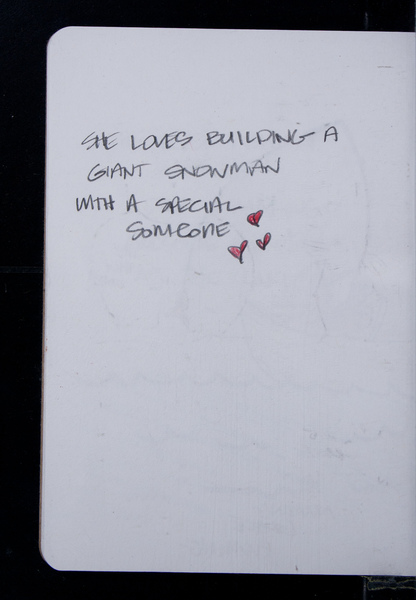 SHE LOVES BUILDING A
GIANT SNOWMAN
WITH A SPECIAL
SOMEONE